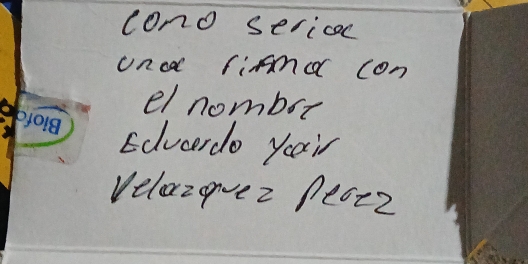 como seria
una firma con
el nombre
Eduardo Yair
Velazquez Perez
Biofo